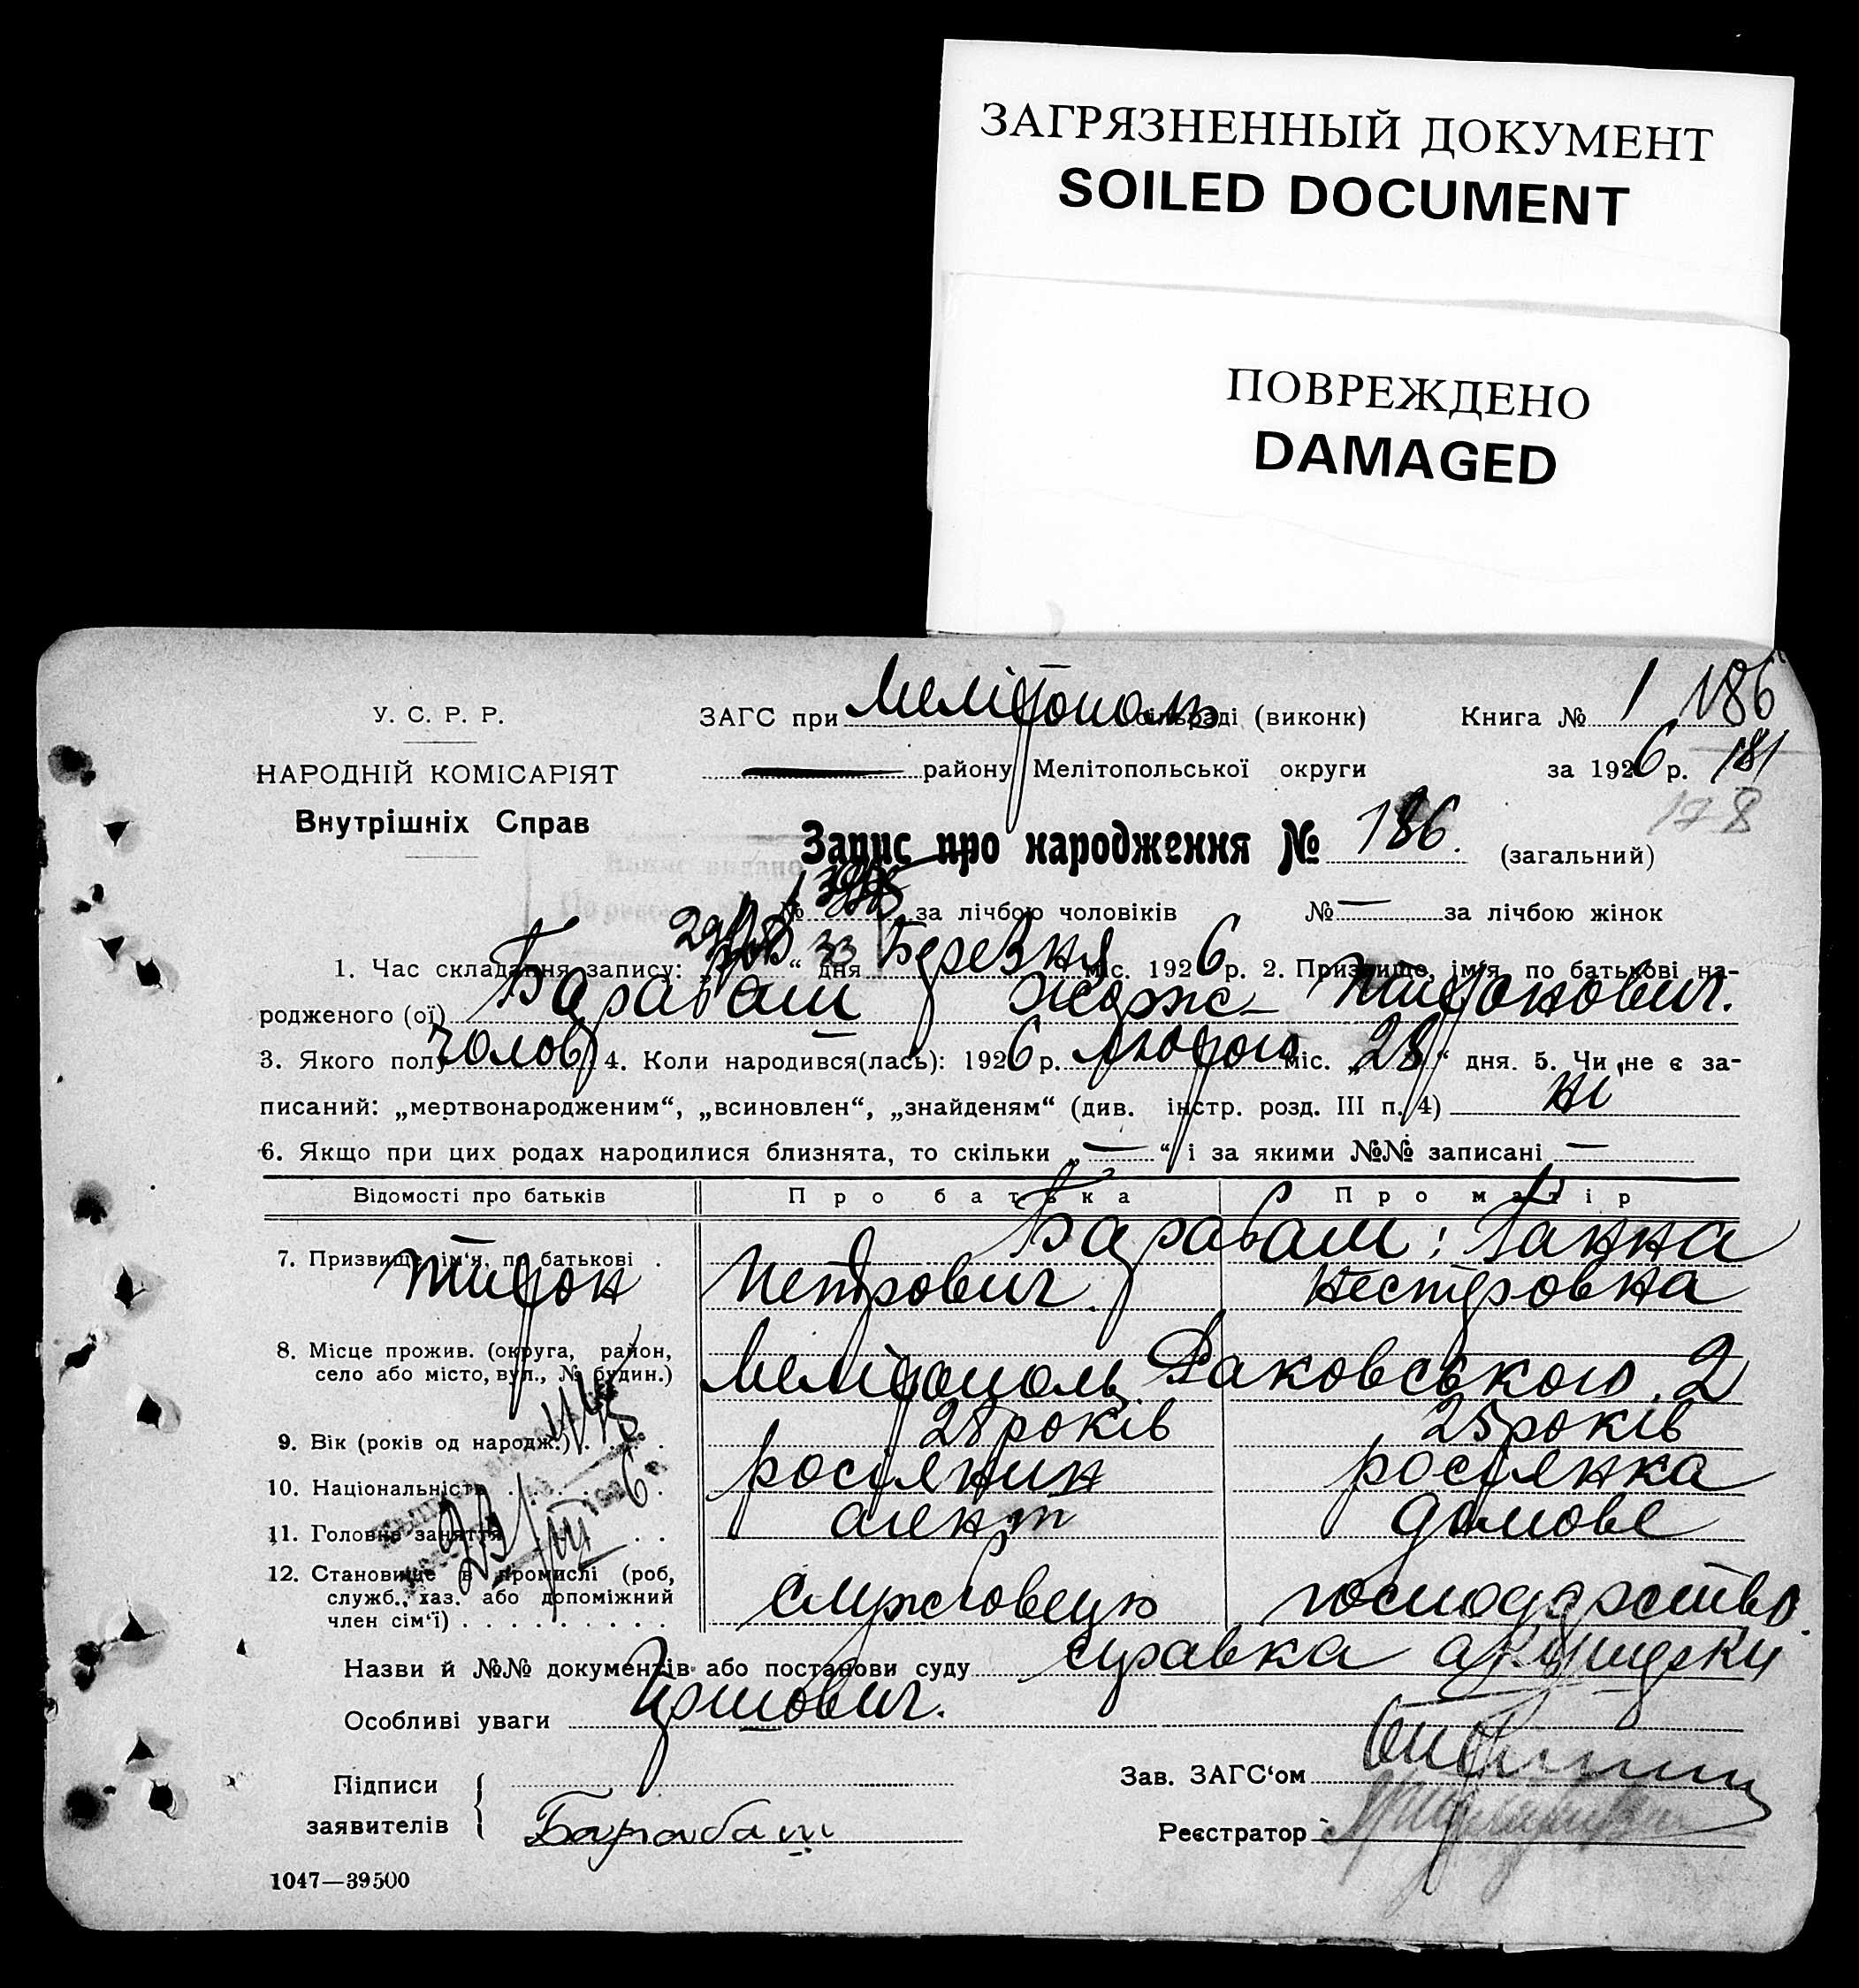 ЗАГРЯЗНЕННЫЙ ДОКУМЕНТ
SOILED DOCUMENT
ПОВРЕЖДЕНО
DAMAGED
У. С. Р. Р.
НАРОДНІЙ КОМІСАРІЯТ
Внутрішніх Справ
ЗАГС при Мелітополь сільраді (виконк) Книга № 1 186
району Мелітопольської округи за 1926 р. 181
178
Запис про народження № 186. (загальний)
№ за лічбою чоловіків № — за лічбою жінок
1. Час складання запису: “ дня Березня міс. 1926 р. 2. Призвище, ім'я, по батькові на-
родженого (ої) Барабаш Жорж Тихонович.
3. Якого полу чолов 4. Коли народився(лась): 1926 р. лютого міс. „28“ дня. 5. Чи не є за-
писаний: „мертвонародженим“, „всиновлен“, „знайденям“ (див. інстр. розд. III п. 4) ні
6. Якщо при цих родах народилися близнята, то скільки „—“ і за якими №№ записані —
Відомості про батьків Про батька Про матір
Барабаш: Ганна
7. Призвище, ім‘я, по батькові .
Тихон Петрович Нестеровна
8. Місце прожив. (округа, район,
село або місто, вул., № будин.) Мелітополь Раковського, 2
9. Вік (років од народж.) . . . 28 років 25 років
10. Національність . . . росіянин росіянка
11. Головне заняття . . агент домове
12. Становище в промислі (роб,
служб., хаз. або допоміжний
член сім‘ї) . . . . . . . . . службовець господарство
Назви й №№ документів або постанови суду справка акушерки
Особливі уваги
Підписи
заявителів Барабаш
Зав. ЗАГС‘ом
Реєстратор
1047—39500